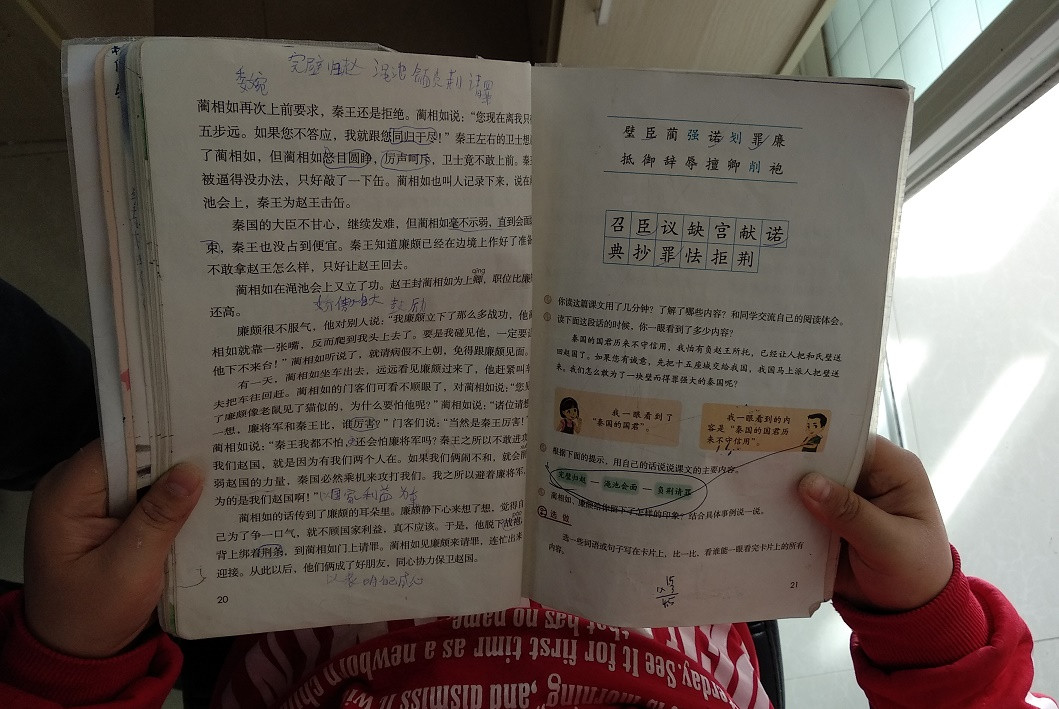 委婉
完璧归赵 渑池 负荆请罪
蔺相如再次上前要求，秦王还是拒绝。蔺相如说：“您现在离我只
五步远。如果您不答应，我就跟您同归于尽！”秦王左右的卫士想
了蔺相如，但蔺相如怒目圆睁，厉声呵斥，卫士竟不敢上前。秦
被逼得没办法，只好敲了一下缶。蔺相如也叫人记录下来，说在
池会上，秦王为赵王击缶。
秦国的大臣不甘心，继续发难，但蔺相如毫不示弱，直到会面
束，秦王也没占到便宜。秦王知道廉颇已经在边境上作好了准备
不敢拿赵王怎么样，只好让赵王回去。
qīng
蔺相如在渑池会上又立了功。赵王封蔺相如为上卿，职位比廉
还高。
廉颇很不服气，他对别人说：“我廉颇立下了那么多战功，他
相如就靠一张嘴，反而爬到我头上去了。要是我碰见他，一定要
他下不来台！”蔺相如听说了，就请病假不上朝，免得跟廉颇见面。
有一天，蔺相如坐车出去，远远看见廉颇过来了，他赶紧叫
夫把车往回赶。蔺相如的门客们可看不顺眼了，对蔺相如说：“您
了廉颇像老鼠见了猫似的，为什么要怕他呢？”蔺相如说：“诸位请
一想，廉将军和秦王比，谁厉害？”门客们说：“当然是秦王厉害！
蔺相如说：“秦王我都不怕，还会怕廉将军吗？秦王之所以不敢进
我们赵国，就是因为有我们两个人在。如果我们俩闹不和，就会
弱赵国的力量，秦国必然乘机来攻打我们。我之所以避着廉将军
为的是我们赵国啊！”以国家利益为本
蔺相如的话传到了廉颇的耳朵里。廉颇静下心来想了想，觉得自
己为了争一口气，就不顾国家利益，真不应该。于是，他脱下战袍
背上绑着荆条，到蔺相如门上请罪。蔺相如见廉颇来请罪，连忙出来
迎接。从此以后，他们俩成了好朋友，同心协力保卫赵国。
20
璧臣蔺强诺划罪廉
抵御辞辱擅卿削袍
召臣议缺宫献诺
典抄罪怯拒荆
你读这篇课文用了几分钟？了解了哪些内容？和同学交流自己的阅读体会。
读下面这段话的时候，你一眼看到了多少内容？
秦国的国君历来不守信用，我怕有负赵王所托，已经让人把和氏璧送
回赵国了。如果您有诚意，先把十五座城交给我国，我国马上派人把璧送
来，我们怎么敢为了一块璧而得罪强大的秦国呢？
我一眼看到了
“秦国的国君”。
我一眼看到的内
容是“秦国的国君历
来不守信用”。
根据下面的提示，用自己的话说说课文的主要内容。
完璧归赵 — 渑池会面 — 负荆请罪
蔺相如、廉颇给你留下了怎样的印象？结合具体事例说一说。
选做
选一些词语或句子写在卡片上，比一比，看谁能一眼看完卡片上的所有
内容。
15
×3
45
21
that has no name
See It for first timr as a newborn
morning, and dismiss it